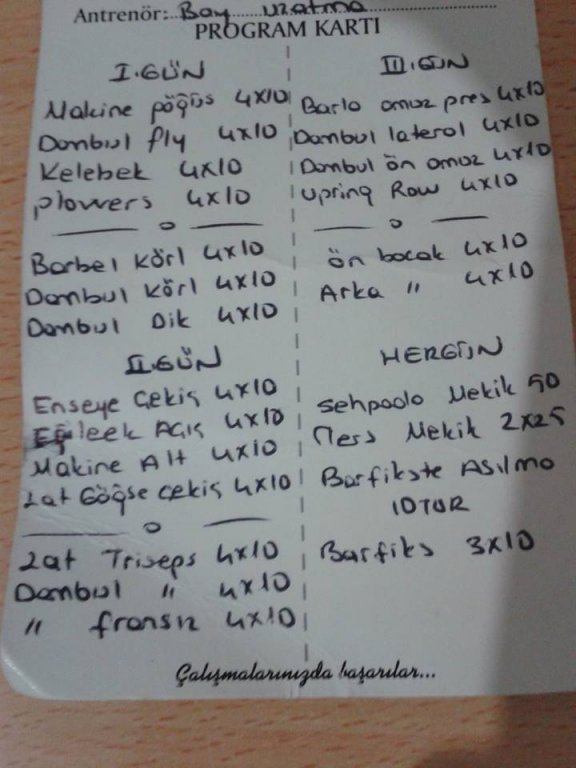 Antrenör: Bay uzatma
PROGRAM KARTI
I.GÜN
Makine pöğüs 4x10
Dambul fly 4x10
Kelebek 4x10
plovvers 4x10
Barbel körl 4x10
Dambul körl 4x10
Dambul Dik 4x10
II.GÜN
Enseye Çekiş 4x10
leek Açış 4x10
Makine Alt 4x10
Lat Göğse çekiş 4x10
Lat Triseps 4x10
Dambul " 4x10
" fransız 4x10
III.GÜN
Barla omuz pres 4x10
Dambul lateral 4x10
Dambul ön omuz 4x10
upring Row 4x10
ön bacak 4x10
Arka " 4x10
HERGÜN
sehpada Mekik 50
Ters Mekik 2x25
Barfikste Asılma
10TUR
Barfiks 3x10
Çalışmalarınızda başarılar...